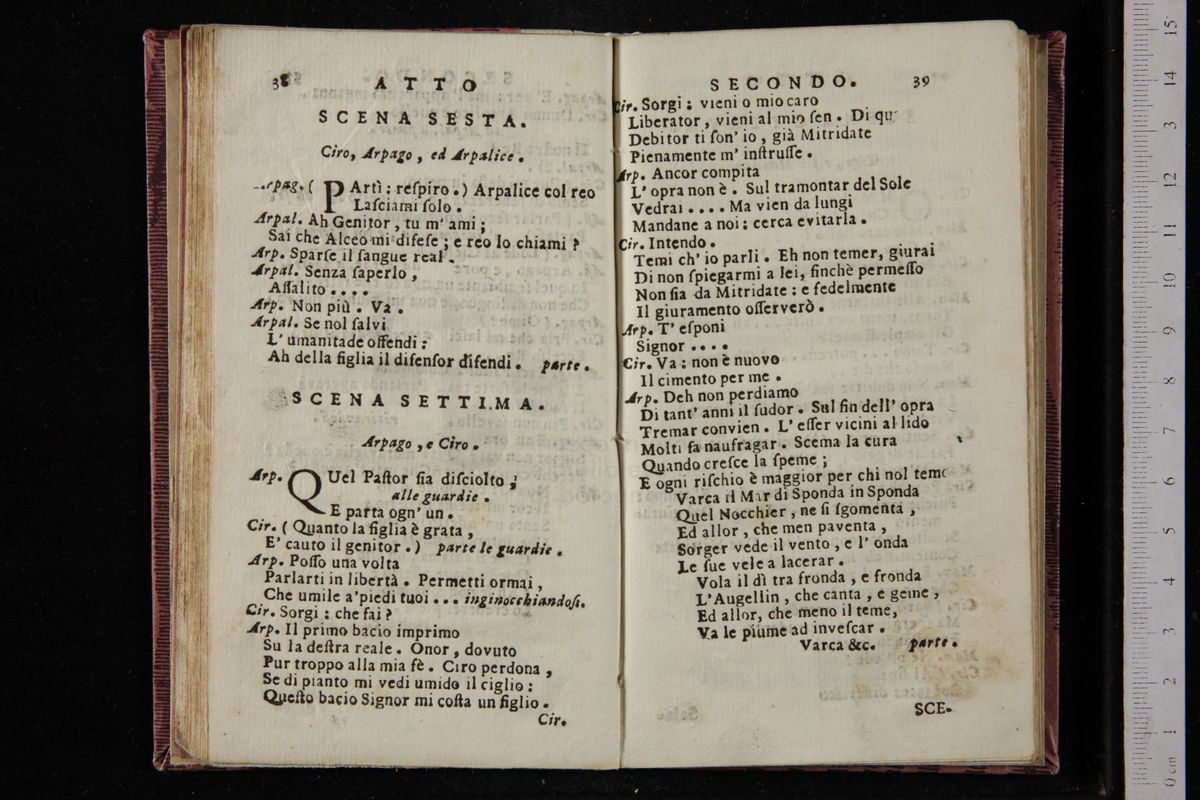 38 ATTO
SCENA SESTA.
Ciro, Arpago, ed Arpalice.
rpag. ( PArtì: reſpiro. ) Arpalice col reo
Laſciami ſolo.
Arpal. Ah Genitor, tu m' ami;
Sai che Alceo mi difeſe; e reo lo chiami?
Arp. Sparſe il ſangue real.
Arpal. Senza ſaperlo,
Aſſalito....
Arp. Non più. Va.
Arpal. Se nol ſalvi
L' umanitade offendi:
Ah della figlia il difenſor difendi. parte.
SCENA SETTIMA.
Arpago, e Ciro.
Arp. QUel Paſtor ſia diſciolto;
alle guardie.
E parta ogn' un.
Cir. ( Quanto la figlia è grata,
E' cauto il genitor. ) parte le guardie.
Arp. Poſſo una volta
Parlarti in libertà. Permetti ormai,
Che umile a' piedi tuoi... inginocchiandoſi.
Cir. Sorgi: che fai?
Arp. Il primo bacio imprimo
Su la deſtra reale. Onor, dovuto
Pur troppo alla mia fè. Ciro perdona,
Se di pianto mi vedi umido il ciglio:
Queſto bacio Signor mi coſta un figlio.
Cir.
SECONDO. 39
Cir. Sorgi: vieni o mio caro
Liberator, vieni al mio ſen. Di qu
Debitor ti ſon' io, già Mitridate
Pienamente m' inſtruſſe.
Arp. Ancor compita
L' opra non è. Sul tramontar del Sole
Vedrai.... Ma vien da lungi
Mandane a noi: cerca evitarla.
Cir. Intendo.
Temi ch' io parli. Eh non temer, giurai
Di non ſpiegarmi a lei, finchè permeſſo
Non ſia da Mitridate: e fedelmente
Il giuramento oſſerverò.
Arp. T' eſponi
Signor....
Cir. Va: non è nuovo
Il cimento per me.
Arp. Deh non perdiamo
Di tant' anni il ſudor. Sul fin dell' opra
Tremar convien. L' eſſer vicini al lido
Molti fa naufragar. Scema la cura
Quando creſce la ſpeme;
E ogni riſchio è maggior per chi nol teme
Varca il Mar di Sponda in Sponda
Quel Nocchier, ne ſi ſgomenta,
Ed allor, che men paventa,
Sorger vede il vento, e l' onda
Le ſue vele a lacerar.
Vola il dì tra fronda, e fronda
L'Augellin, che canta, e geme,
Ed allor, che meno il teme,
Va le piume ad inveſcar.
Varca &c. parte.
SCE.
15
14
13
12
11
10
9
8
7
6
5
4
3
2
1
0 cm